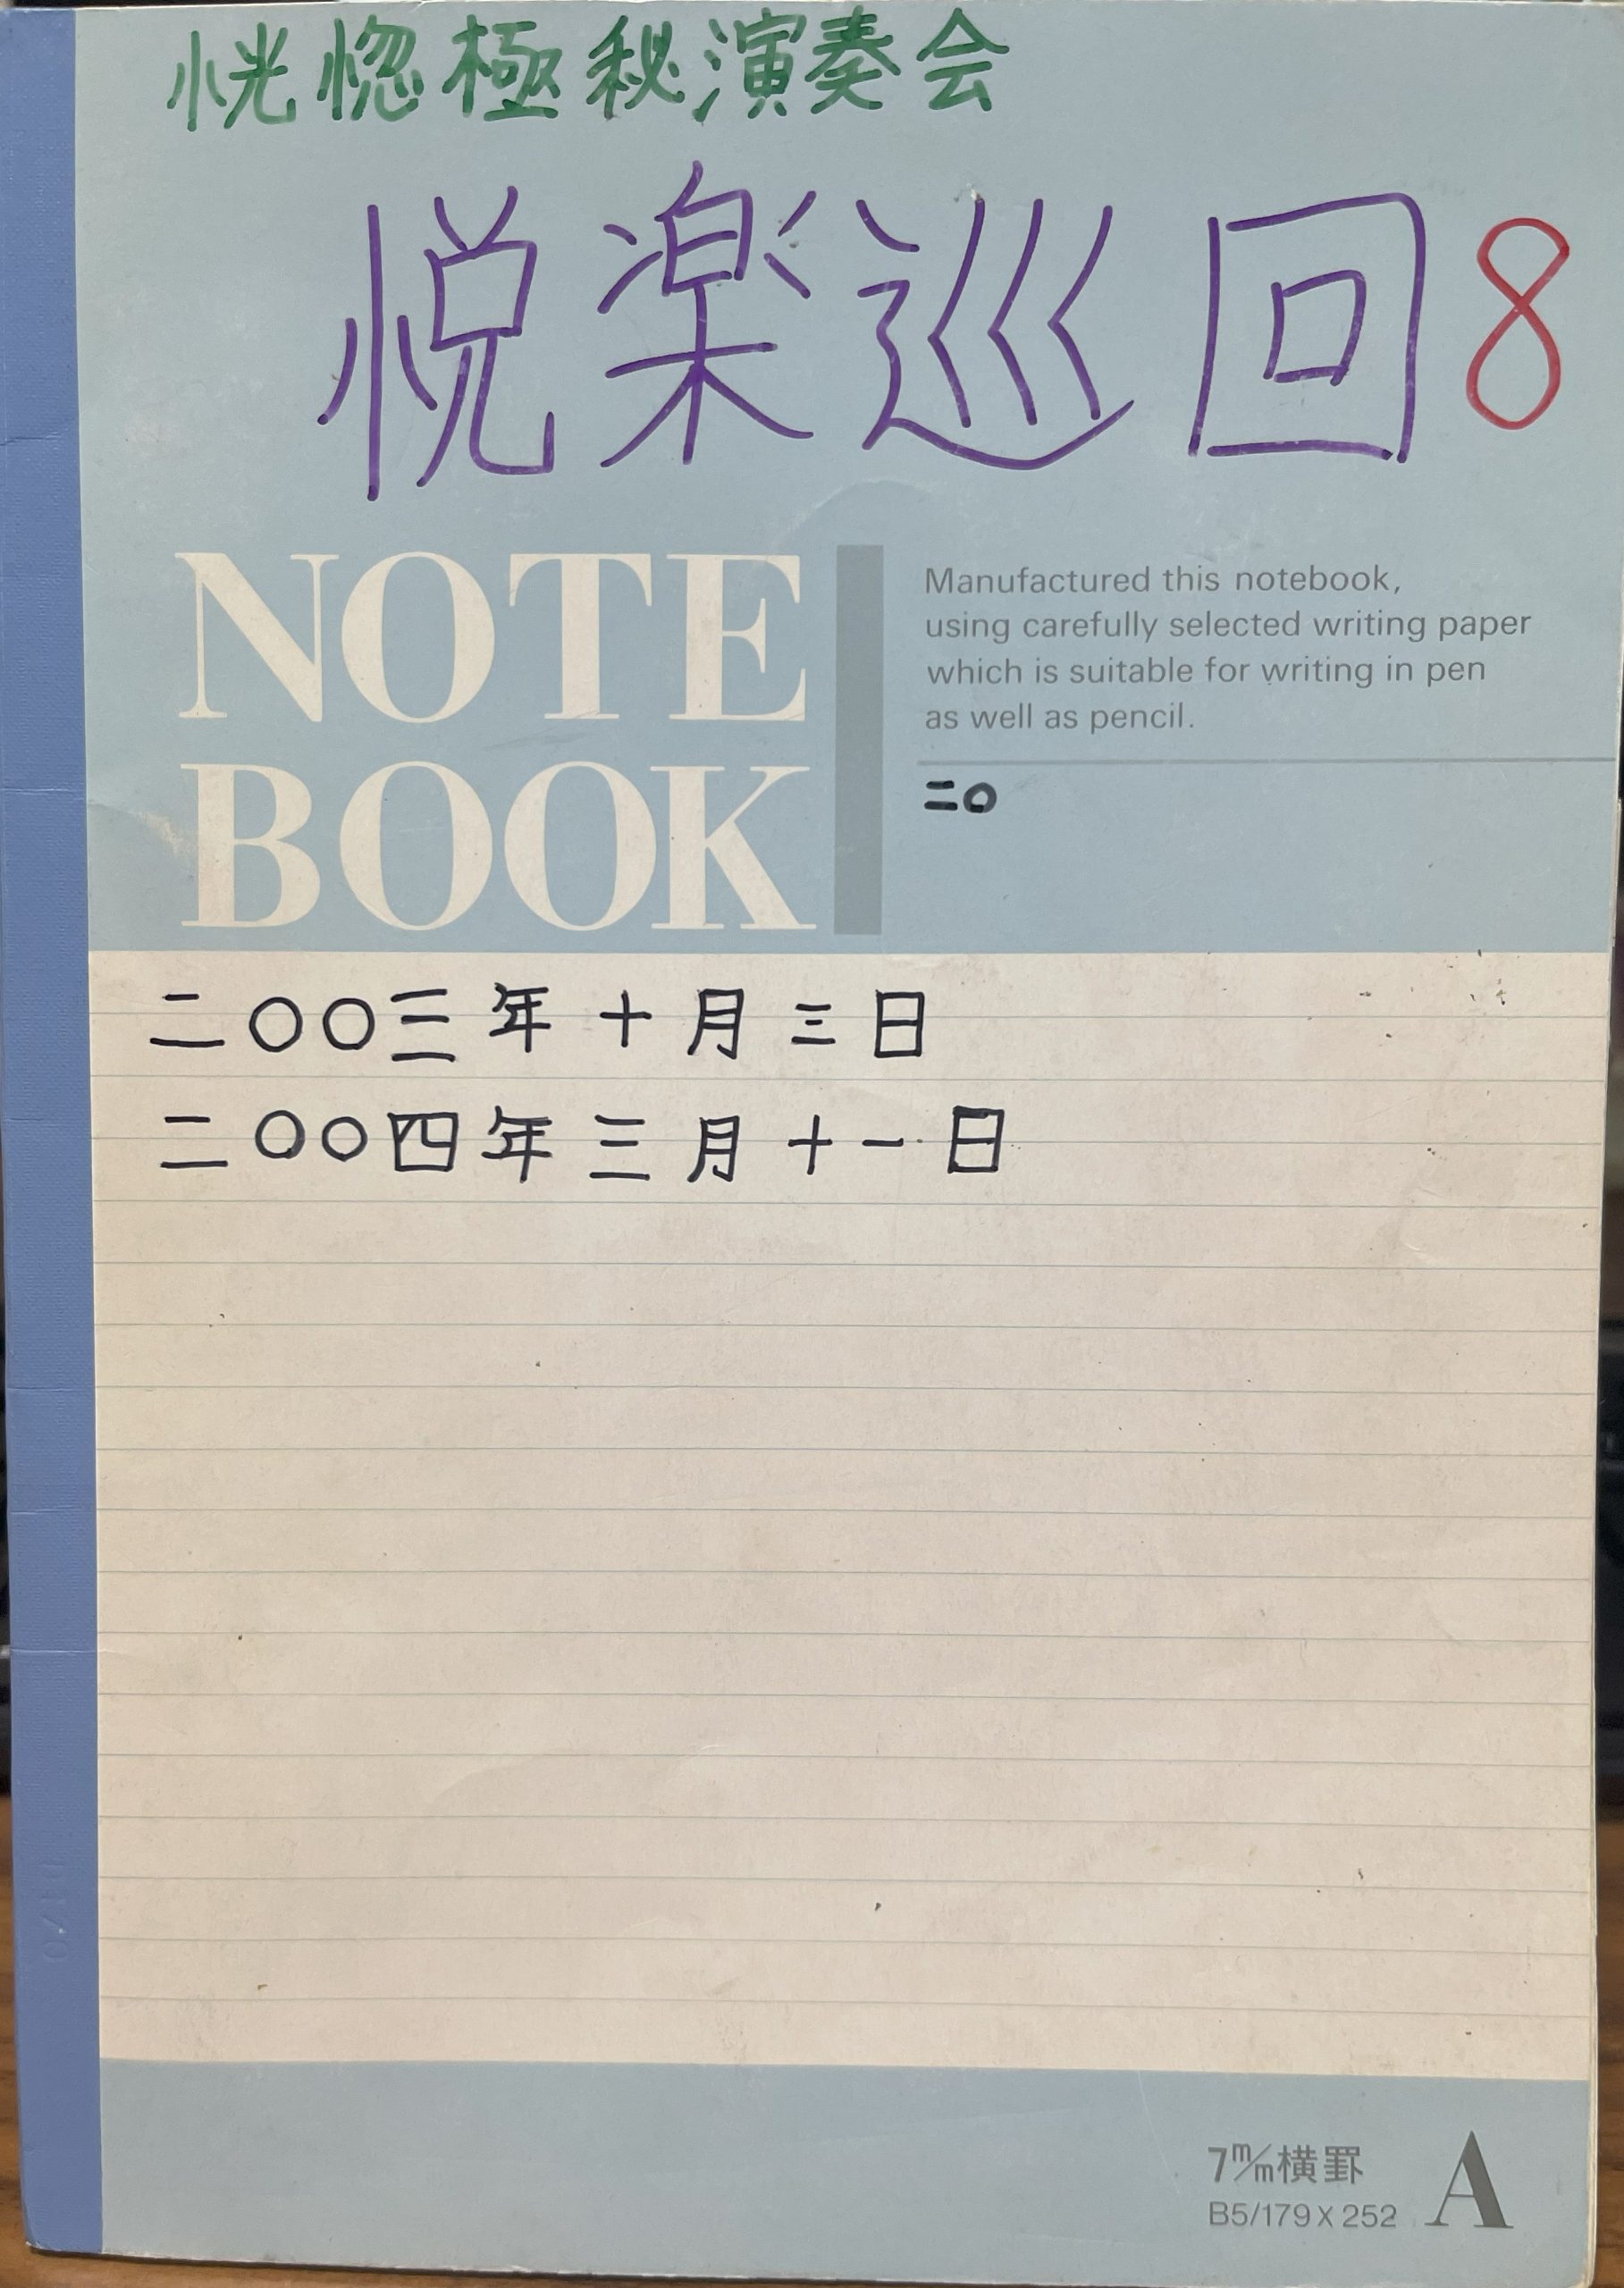 恍惚極秘演奏会
悦楽巡回8
NOTE
BOOK
Manufactured this notebook,
using carefully selected writing paper
which is suitable for writing in pen
as well as pencil.
二〇
二〇〇三年十月三日
二〇〇四年三月十一日
7m/m横罫
B5/179×252
A